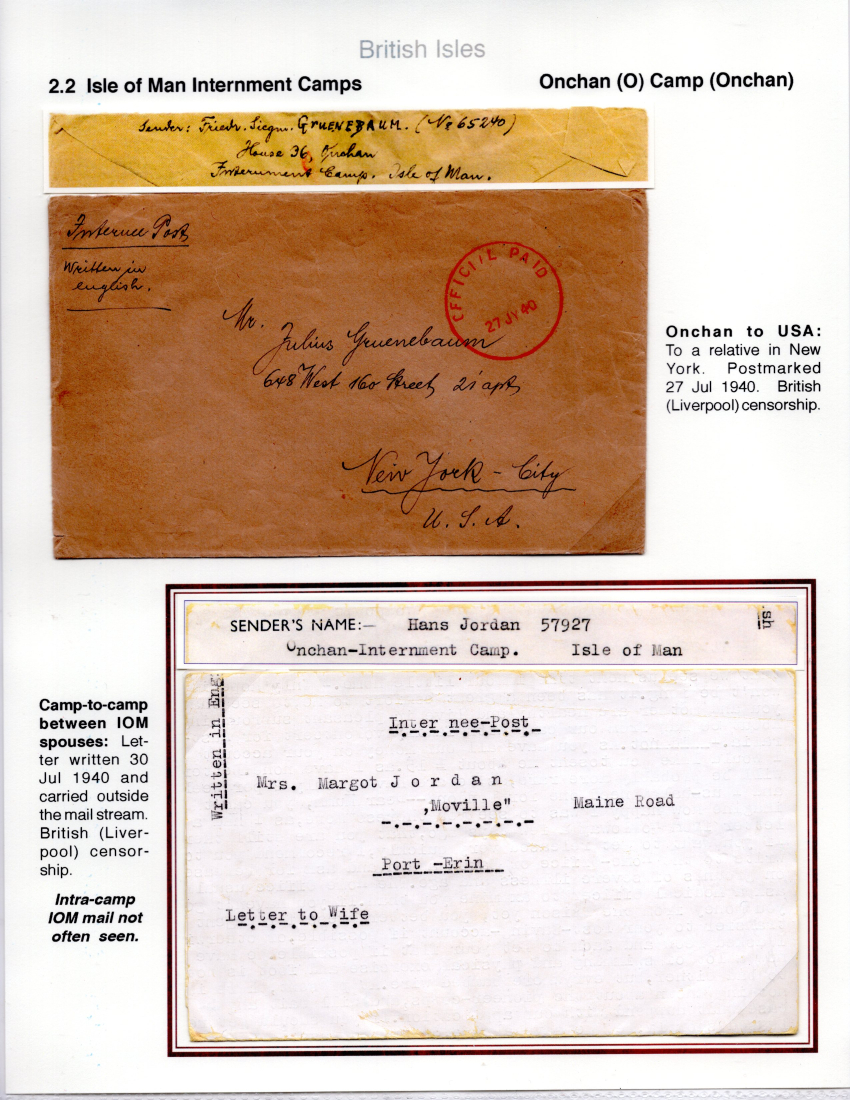 British Isles
2.2 Isle of Man Internment Camps
Onchan (O) Camp (Onchan)
Sender: Friedr. Siegm. GRUENEBAUM. (No 65240)
House 36, Onchan
Internment Camp. Isle of Man.
Internee Post
Written in
english.
OFFICIAL PAID
27 JY 40
Mr.
Julius Gruenebaum
648 West 160 Street, 21 apt,
New York - City
U. S. A.
Onchan to USA:
To a relative in New
York. Postmarked
27 Jul 1940. British
(Liverpool) censorship.
SENDER'S NAME:— Hans Jordan 57927
Onchan-Internment Camp. Isle of Man
sh
Written in Eng
Inter nee-Post
Mrs. Margot J o r d a n
„Moville" Maine Road
Port -Erin
Letter to Wife
Camp-to-camp
between IOM
spouses: Let-
ter written 30
Jul 1940 and
carried outside
the mail stream.
British (Liver-
pool) censor-
ship.
Intra-camp
IOM mail not
often seen.